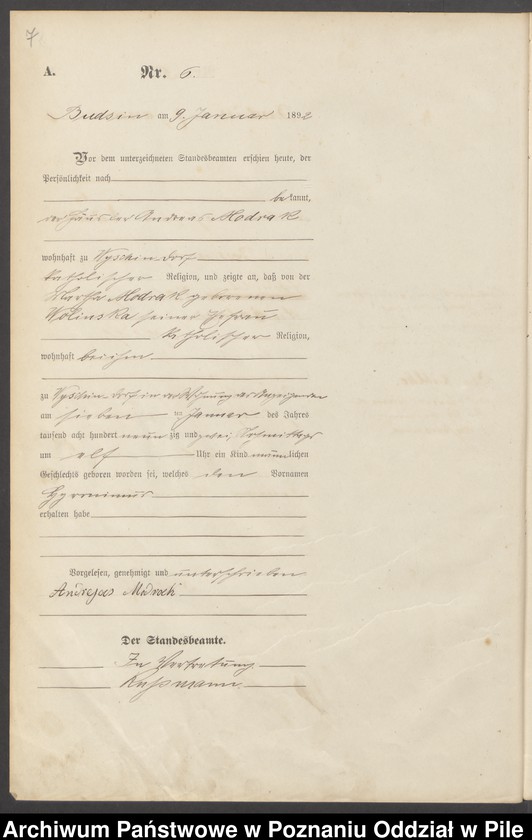 7
A. Nr. 6.
Budsin am 9. Januar 1892
Vor dem unterzeichneten Standesbeamten erschien heute, der
Persönlichkeit nach
bekannt,
der Häusler Andreas Modrak
wohnhaft zu Wyschindorf
katholischer Religion, und zeigte an, daß von der
Martha Modrak geborenen
Wolinska seiner Ehefrau
katholischer Religion,
wohnhaft bei ihm
zu Wyschindorf in der Wohnung des Anzeigenden
am sieben ten Januar des Jahres
tausend acht hundert neun zig und zwei, Vormittags
um elf Uhr ein Kind männlichen
Geschlechts geboren worden sei, welches den Vornamen
erhalten habe
Vorgelesen, genehmigt und unterschrieben
Andrejas Modrack
Der Standesbeamte.
In Vertretung
Archiwum Państwowe w Poznaniu Oddział w Pile